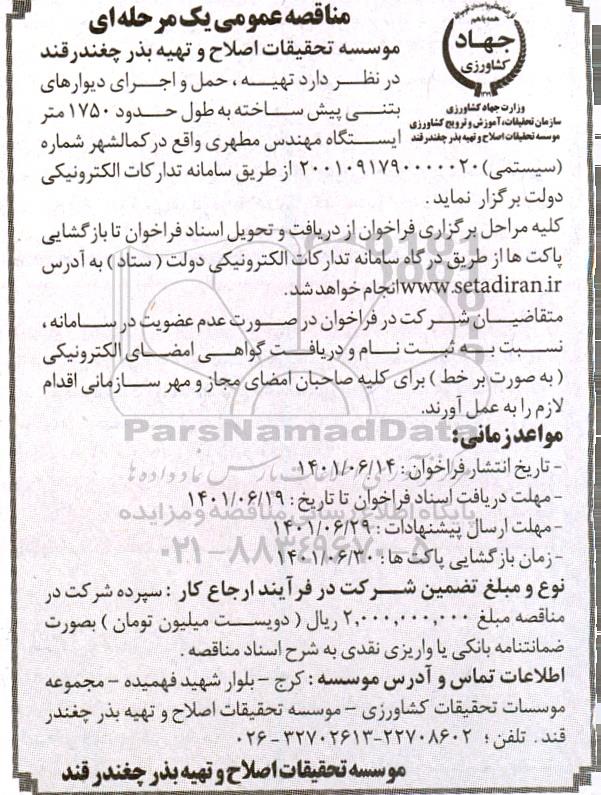 مناقصه عمومی یک مرحله ای
جهاد
کشاورزی
وزارت جهاد کشاورزی
سازمان تحقیقات، آموزش و ترویج کشاورزی
موسسه تحقیقات اصلاح و تهیه بذر چغندر قند
موسسه تحقیقات اصلاح و تهیه بذر چغندر قند
در نظر دارد تهیه ، حمل و اجرای دیوارهای
بتنی پیش ساخته به طول حدود ۱۷۵۰ متر
ایستگاه مهندس مطهری واقع در کمالشهر شماره
(سیستمی) ۲۰۰۱۰۹۱۷۹۰۰۰۰۰۲۰ از طریق سامانه تدارکات الکترونیکی
دولت برگزار نماید .
کلیه مراحل برگزاری فراخوان از دریافت و تحویل اسناد فراخوان تا بازگشایی
پاکت ها از طریق درگاه سامانه تدارکات الکترونیکی دولت ( ستاد ) به آدرس
www.setadiran.ir انجام خواهد شد.
متقاضیان شرکت در فراخوان در صورت عدم عضویت در سامانه ،
نسبت به ثبت نام و دریافت گواهی امضای الکترونیکی
( به صورت بر خط ) برای کلیه صاحبان امضای مجاز و مهر سازمانی اقدام
لازم را به عمل آورند.
ParsNamadData
مواعد زمانی:
- تاریخ انتشار فراخوان : ۱۴۰۱/۰۶/۱۴
- مهلت دریافت اسناد فراخوان تا تاریخ : ۱۴۰۱/۰۶/۱۹
پایگاه اطلاع رسانی مناقصه و مزایده
- مهلت ارسال پیشنهادات : ۱۴۰۱/۰۶/۲۹
۰۲۱-۸۸۳۴۹۶۷۰-۵
- زمان بازگشایی پاکت ها : ۱۴۰۱/۰۶/۳۰
نوع و مبلغ تضمین شرکت در فرآیند ارجاع کار : سپرده شرکت در
مناقصه مبلغ ۲,۰۰۰,۰۰۰,۰۰۰ ریال ( دویست میلیون تومان ) بصورت
ضمانتنامه بانکی یا واریزی نقدی به شرح اسناد مناقصه .
اطلاعات تماس و آدرس موسسه : کرج - بلوار شهید فهمیده - مجموعه
موسسات تحقیقات کشاورزی - موسسه تحقیقات اصلاح و تهیه بذر چغندر
قند . تلفن : ۲۲۷۰۸۶۰۲-۳۲۷۰۲۶۱۳-۰۲۶
موسسه تحقیقات اصلاح و تهیه بذر چغندر قند